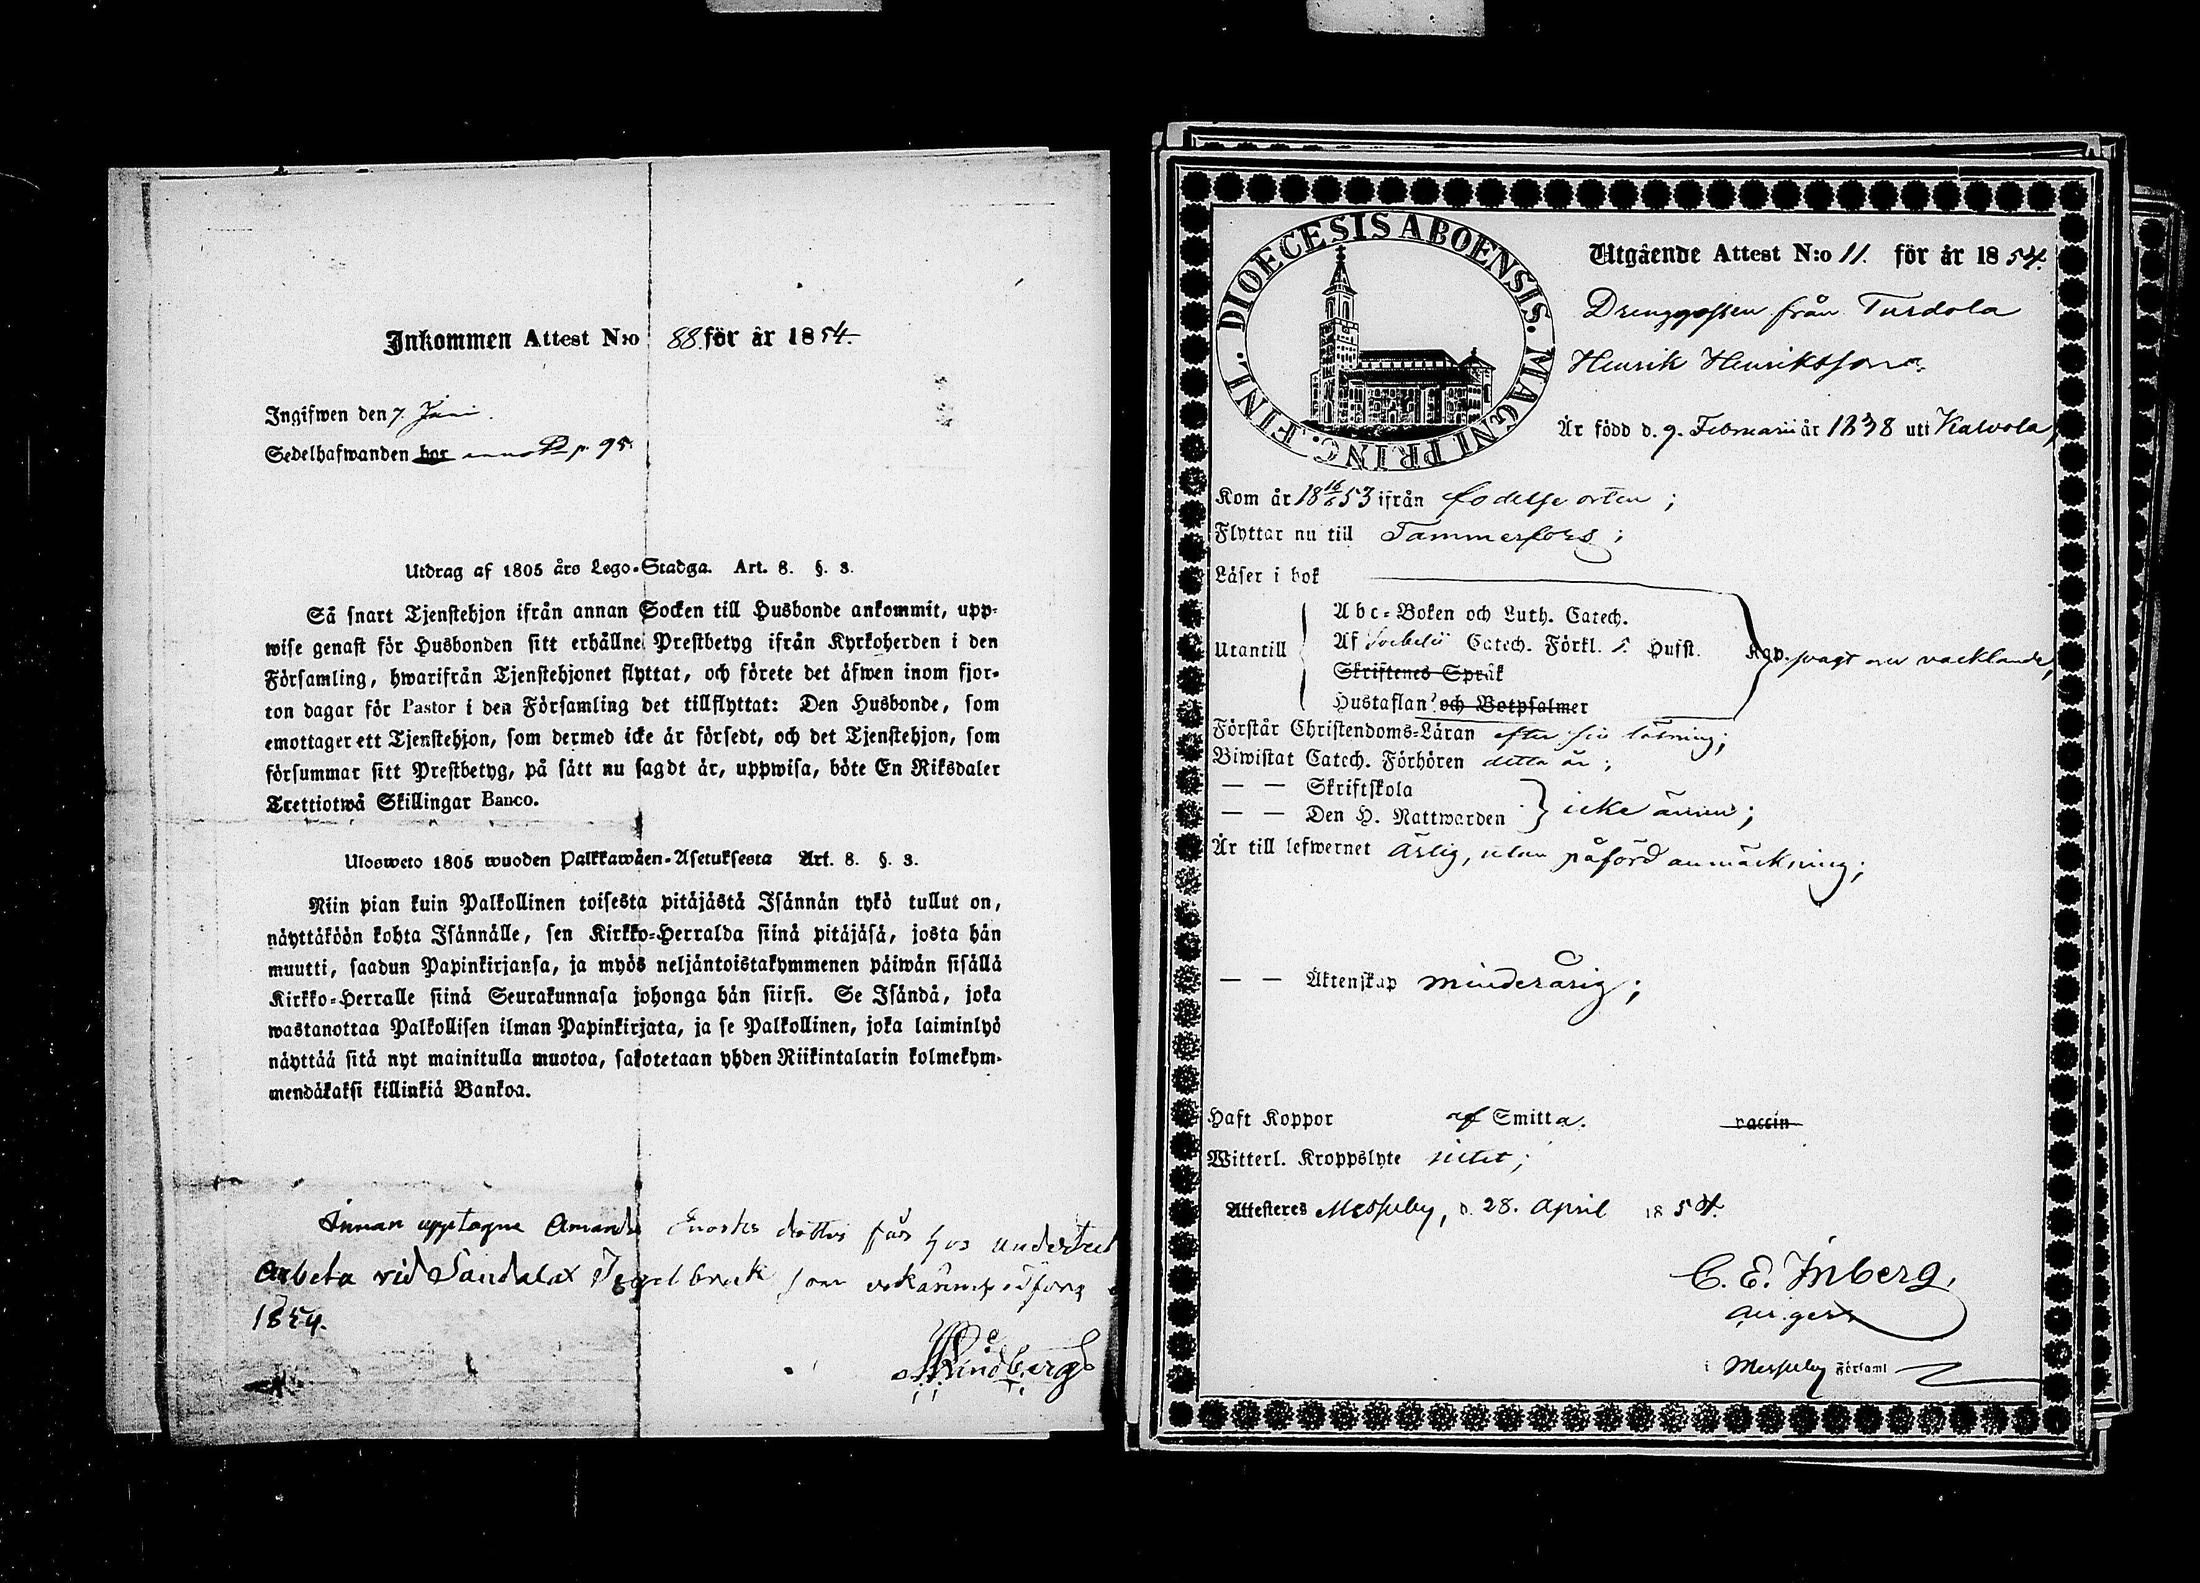 Inkommen Attest N:o 88. för år 1854.
Ingifwen den 7. Juni.
Sedelhafwanden bor p. 95.
Utdrag af 1805 års Lego-Stadga. Art. 8. §. 3.
Så snart Tjenstehjon ifrån annan Socken till Husbonde ankommit, upp-
wise genast för Husbonden sitt erhållne Prestbetyg ifrån Kyrkoherden i den
Församling, hwarifrån Tjenstehjonet flyttat, och förete det äfwen inom fjor-
ton dagar för Pastor i den Församling det tillflyttat: Den Husbonde, som
emottager ett Tjenstehjon, som dermed icke är försedt, och det Tjenstehjon, som
försummar sitt Prestbetyg, på sätt nu sagdt är, uppwisa, böte En Riksdaler
Trettiotwå Skillingar Banco.
Ulosweto 1805 wuoden Palkkawäen-Asetuksesta Art. 8. §. 3.
Niin pian kuin Palkollinen toisesta pitäjästä Isännän tykö tullut on,
näyttäköön kohta Isännälle, sen Kirkko-Herralda siinä pitäjäsä, josta hän
muutti, saadun Papinkirjansa, ja myös neljäntoistakymmenen päiwän sisällä
Kirkko-Herralle siinä Seurakunnasa johonga hän siirsi. Se Isändä, joka
wastanottaa Palkollisen ilman Papinkirjata, ja se Palkollinen, joka laiminlyö
näyttää sitä nyt mainitulla muotoa, sakotetaan yhden Riikintalarin kolmekym-
mendäkaksi killinkiä Bankoa.
Innan upptagne Amanda Enochs dotter får hos
Arbeta vid Sandalax Tegelbruk som
1854.
Windberg
DIOECESIS ABOENSIS. MAGNI PRINC. FINL.
Utgående Attest N:o 11. för år 1854.
Drenggossen från Turdola
Henrik Henriksson.
Är född d. 9. Februarii år 1838 uti Kalvola,
Kom år 18 16/6 53 ifrån födelse orten;
Flyttar nu till Tammerfors;
Läser i bok
Utantill
Abc-Boken och Luth. Catech.
Af Catech. Förkl. Hufst. Kap. svagt
Skriftenes Språk
Hustaflan och Botpsalmer
Förstår Christendoms-Läran efter sin läsning;
Biwistat Catech. Förhören detta år;
— — Skriftskola
— — Den H. Nattwarden icke ännu;
Är till lefwernet ärlig, utan påförd anmärkning;
— — Äktenskap minderårig;
Haft Koppor af Smitta. vaccin
Witterl. Kroppslyte intet;
Attesteres Messuby, d. 28. April 1854.
C. E. Inberg,
i Messuby Församl